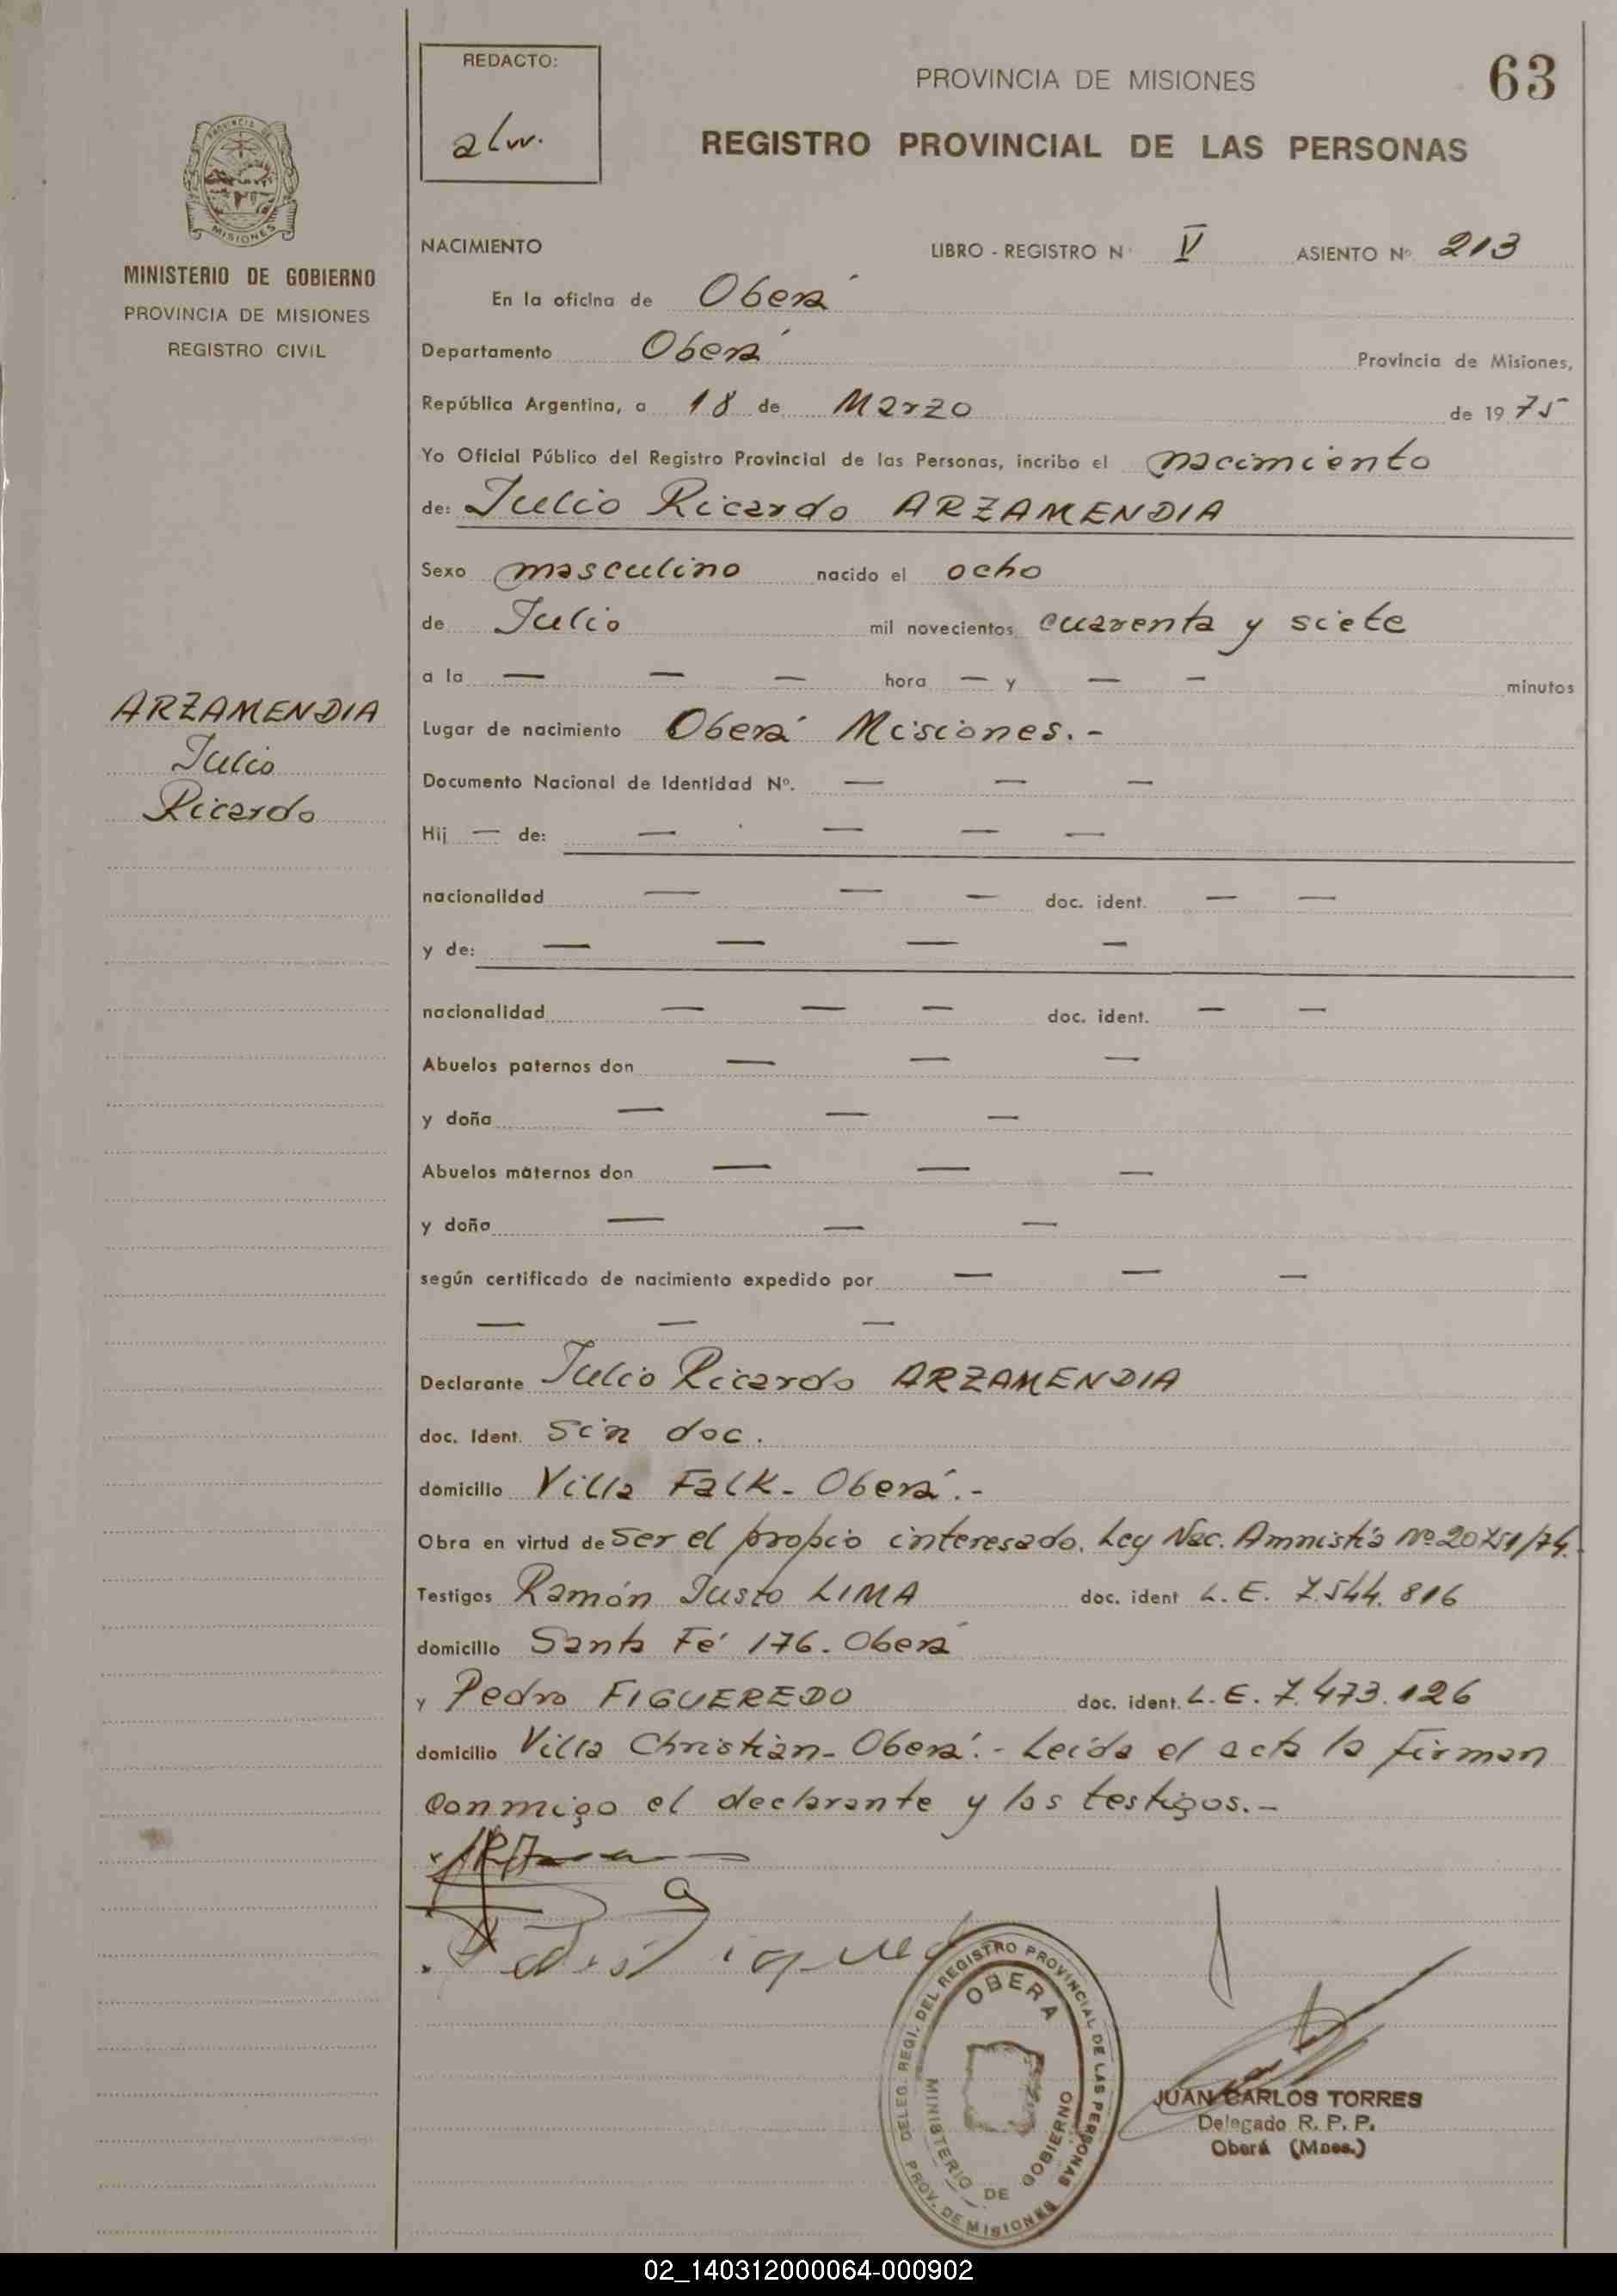 REDACTO:
alw.
PROVINCIA DE MISIONES
63
REGISTRO PROVINCIAL DE LAS PERSONAS
PROVINCIA DE
MISIONES
MINISTERIO DE GOBIERNO
PROVINCIA DE MISIONES
REGISTRO CIVIL
NACIMIENTO LIBRO - REGISTRO Nº V ASIENTO Nº 213
En la oficina de Oberá
Departamento Oberá Provincia de Misiones,
República Argentina, a 18 de Marzo de 1975
Yo Oficial Público del Registro Provincial de las Personas, incribo el nacimiento
de: Julio Ricardo ARZAMENDIA
Sexo masculino nacido el ocho
de Julio mil novecientos cuarenta y siete
a la — — — hora — y — — minutos
ARZAMENDIA
Julio
Ricardo
Lugar de nacimiento Oberá Misiones.-
Documento Nacional de Identidad Nº. — — —
Hij — de: — — — —
nacionalidad — — — doc. ident. — —
y de: — — — —
nacionalidad — — — doc. ident. — —
Abuelos paternos don — — —
y doña — — —
Abuelos maternos don — — —
y doña — — —
según certificado de nacimiento expedido por — — —
— — —
Declarante Julio Ricardo ARZAMENDIA
doc. Ident. Sin doc.
domicilio Villa Falk - Oberá.-
Obra en virtud de Ser el propio interesado. Ley Nac. Amnistía Nº 20751/74.
Testigos Ramón Justo LIMA doc. ident L. E. 7.544.816
domicilio Santa Fé 176 - Oberá
y Pedro FIGUEREDO doc. ident. L. E. 7.473.126
domicilio Villa Christian - Oberá.- Leída el acta la firman
conmigo el declarante y los testigos.-
DELEG. REGI. DEL REGISTRO PROVINCIAL DE LAS PERSONAS
OBERA
MINISTERIO DE GOBIERNO
PROV. DE MISIONES
JUAN CARLOS TORRES
Delegado R. P. P.
Oberá (Mnes.)
02_140312000064-000902